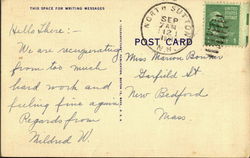 THIS SPACE FOR WRITING MESSAGES
Hello There:-
We are recuperating
from too much
hard work and
feeling fine again.
Regards from
Mildred W.
NORTH SUTTON
SEP
12
N.H.
POST CARD
Miss Marion Bonner
Garfield St
New Bedford
Mass.